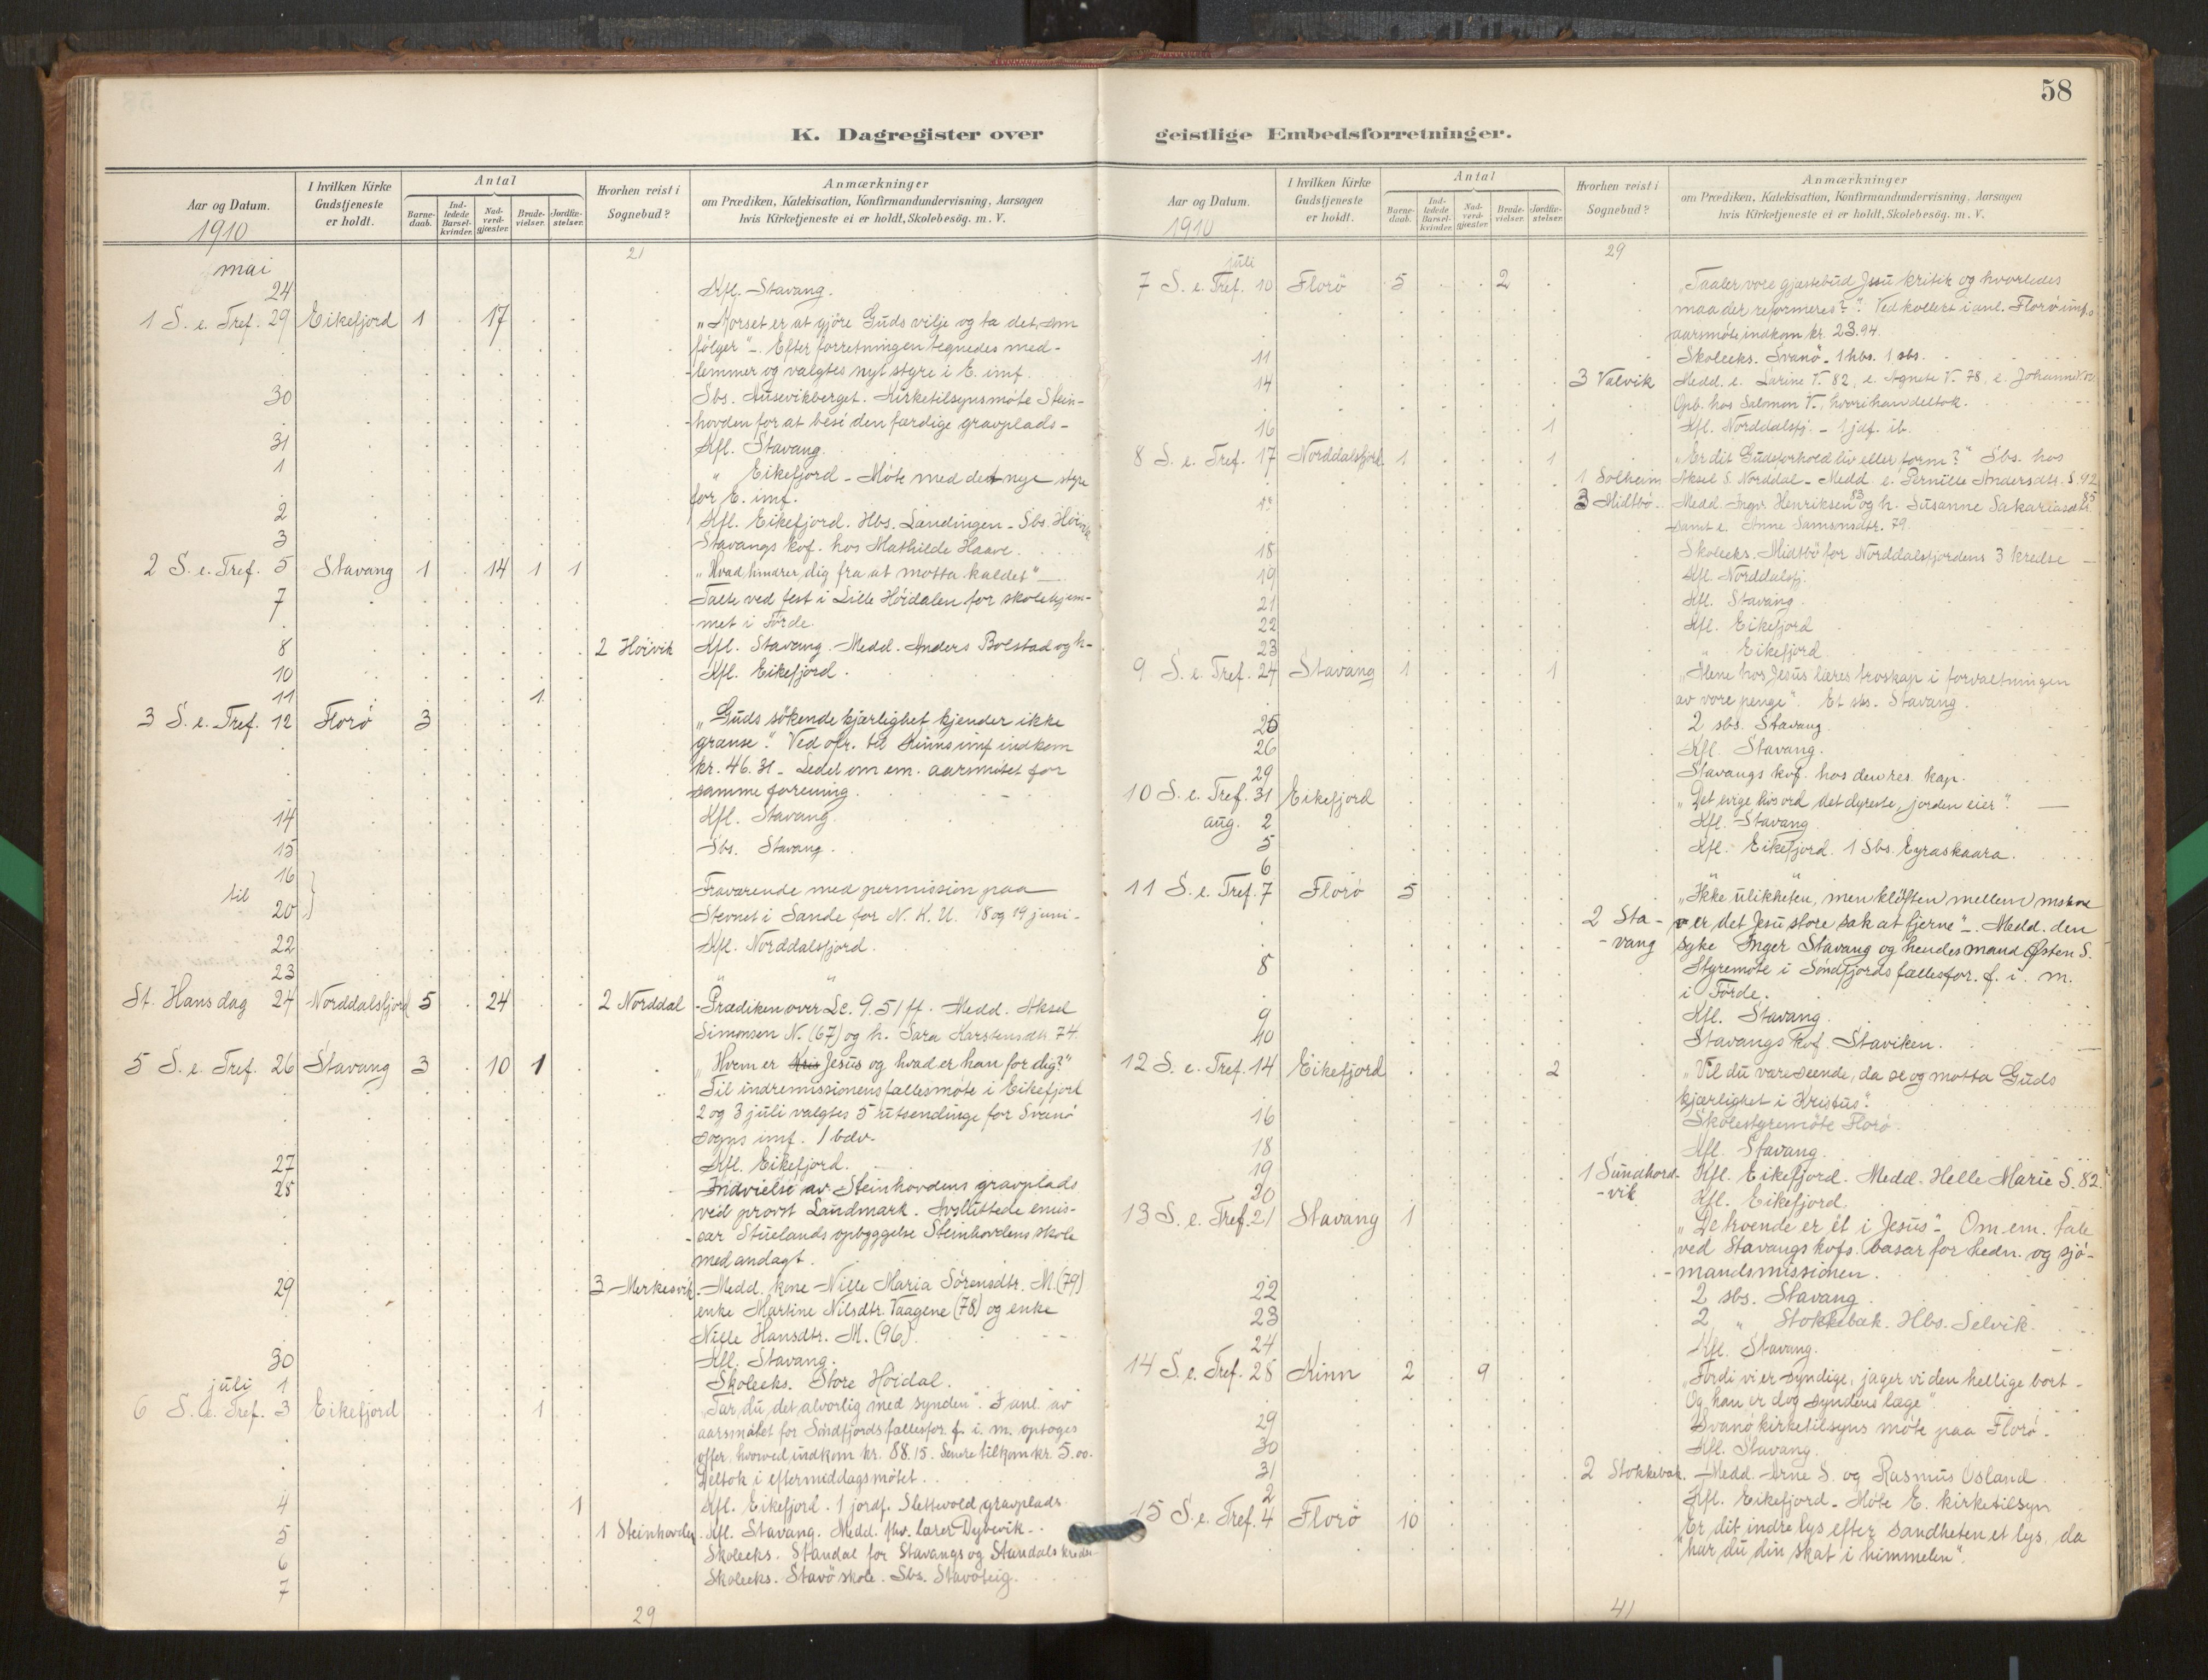 58
K. Dagregister over
Aar og Datum.
1910
I hvilken Kirke
Gudstjeneste
er holdt.
Antal
Barne-
daab.
Ind-
ledede
Barsel-
kvinder.
Nad-
verd-
gjæster.
Brude-
vielser.
Jordfæ-
stelser.
Hvorhen reist i
Sognebud?
Anmærkninger
om Prædiken, Katekisation, Konfirmandundervisning, Aarsagen
hvis Kirketjeneste ei er holdt, Skolebesög. m. V.
21
mai
24 Kfl. Stavang.
1 S. e. Tref. 29 Eikefjord 1 17 „Korset er at gjöre Guds vilje og ta det, som
fölger" –. Efter forretningen tegnedes med-
-lemmer og valgtes nyt styre i E. imf.
30 Sbs. Husevikberget. Kirketilsynsmöte Stein-
-hovden for at bese den færdige gravplads –
31 Kfl. Stavang.
1 „ Eikefjord – Möte med det nye styre
for E. imf.
2 Kfl. Eikefjord. Hbs. Landingen – Sbs.
3 Stavangs kvf. hos Mathilde Haave.
2 S. e. Tref. 5 Stavang 1 14 1 1 „Hvad hindrer dig fra at motta kaldet" –
7 Talte ved fest i Lille Höidalen for skolehjem-
-met i Förde.
8 2 Höivik Kfl. Stavang. Medd. Anders Bolstad og h–
10 Kfl. Eikefjord.
11 1
3 S. e. Tref. 12 Florö 3 „Guds sökende kjærlighet kjender ikke
grænse". Ved ofr. til Kinns imf indkom
kr. 46.31 – Ledet om em. aarsmötet for
samme forening.
14 Kfl. Stavang
15 Sbs. Stavang.
16
til Fraværende med permission paa
20 Stevnet i Sande for N. K. U. 18 og 19 juni –
22 Kfl. Norddalsfjord.
23 „ „
St. Hans dag 24 Norddalsfjord 5 24 2 Norddal – Prædiken over Lc. 9.51 ff. Medd. Aksel
Simonsen N. (67) og h. Sara Karstensdtr. 74
5 S. e. Tref. 26 Stavang 3 10 1 „Hvem er Kris Jesus og hvad er han for dig?"
Til indremissionens fællesmöte i Eikefjord
2 og 3 juli valgtes 5 utsendinge for Svanö
sogns imf. 1 bdv.
27 Kfl. Eikefjord.
28 Indvielse av Steinhovdens gravplads
ved provst Landmark. Avsluttede emis-
-sær Stuelands opbyggelse Steinhovdens skole
med andagt.
29 3 Merkesvik – Medd. kone Nille Maria Sörensdtr. M. (79)
enke Martine Nilsdtr. Vaagene (78) og enke
Nille Hansdtr. M. (96).
30 Kfl. Stavang.
juli 1 Skoleeks. Store Höidal.
6 S. e. Tref. 3 Eikefjord 1 „Tar du det alvorlig med synden". I anl. av
aarsmötet for Söndfjords fællesfor. f. i. m. optoges
offer, hvorved indkom kr. 88.15. Senere tilkom kr. 5.00.
Deltok i eftermiddagsmötet.
4 1 Kfl. Eikefjord. 1 jordf. Slettevold gravplads
5 1 Steinhovden Kfl. Stavang. Medd. fhv. lærer Dybevik –
6 Skoleeks. Standal for Stavangs og Standals kredse
7 Skoleeks. Stavö skole. Sbs. Stavöteig.
29
geistlige Embedsforretninger.
Aar og Datum.
1910
I hvilken Kirke
Gudstjeneste
er holdt.
Antal
Barne-
daab.
Ind-
ledede
Barsel-
kvinder.
Nad-
verd-
gjæster.
Brude-
vielser.
Jordfæ-
stelser.
Hvorhen reist i
Sognebud?
Anmærkninger
om Prædiken, Katekisation, Konfirmandundervisning, Aarsagen
hvis Kirketjeneste ei er holdt, Skolebesög. m. V.
29
juli
7 S. e. Tref. 10 Florö 5 2 „Taaler vore gjæstebud Jesu kritik og hvorledes
maa der reformeres?". Ved kollekt i anl. Florö imf.s
aarsmöte indkom kr. 23.94.
11 Skoleeks. Svanö – 1 hbs. 1 sbs.
14 3 Valvik Medd. e. Larine V. 82, e. Agnete V. 78, e. Johanne
Opb. hos Salomon V., hvori han deltok.
16 1 Kfl. Norddalsfj. – 1 jdf. ib.
8 S. e. Tref. 17 Norddalsfjord 1 1 „Er dit Gudsforhold liv eller form?" Sbs. hos
1 Solheim Aksel S. Norddal – Medd. e. Pernille Andersdtr. S. 92
3 Midtbö Medd. Ingv. Henriksen 83 og h. Susanne Sakariasdtr. 85
samt e. Anne Samsonsdtr. 79.
18 Skoleeks. Midtbö for Norddalsfjordens 3 kredse –
19 Kfl. Norddalsfj.
21 Kfl. Stavang.
22 Kfl. Eikefjord
23 „ Eikefjord
9 S. e. Tref. 24 Stavang 1 1 „Alene hos Jesus læres troskap i forvaltningen
av vore penge". Et sbs. Stavang.
25 2 sbs. Stavang
26 Kfl. Stavang.
29 Stavangs kvf. hos den res. kap.
10 S. e. Tref. 31 Eikefjord „Det evige livs ord det dyreste, jorden eier". –
aug. 2 Kfl. Stavang
5 Kfl. Eikefjord. 1 Sbs. Eyraskaara.
6 „
11 S. e. Tref. 7 Florö 5 „Ikke ulikheten, men klöften mellem mskene
2 Sta-
-vang er det Jesu store sak at fjerne" –. Medd. den
syke Inger Stavang og hendes mand Østen S.
8 Styremöte i Söndfjords fællesfor. f. i. m.
i Förde.
9 Kfl. Stavang.
10 Stavangs kvf. Staviken.
12 S. e. Tref. 14 Eikefjord 2 „Vil du være seende, da se og motta Guds
kjærlighet i Kristus".
16 Skolestyremöte Florö.
18 Kfl. Stavang.
19 1 Sundhord-
-vik Kfl. Eikefjord. Medd. Helle Marie S. 82.
20 Kfl. Eikefjord.
13 S. e. Tref. 21 Stavang 1 „De troende er ét i Jesus" – Om em. tale
ved Stavangs kvfs. basar for hedn. og sjö-
-mandsmissionen.
22 2 sbs. Stavang
23 2 „ Stokkebæk. Hbs. Selvik.
24 Kfl. Stavang.
14 S. e. Tref. 28 Kinn 2 9 „Fordi vi er syndige, jager vi den hellige bort –
Og han er dog syndens læge".
29 Svanö kirketilsyns möte paa Florö.
30 Kfl. Stavang.
31 2 Stokkebæk. – Medd. Arne S. og Rasmus Osland
2 Kfl. Eikefjord – Möte E. kirketilsyn
15 S. e. Tref. 4 Florö 10 „Er dit indre lys efter sandheten et lys, da
har du din skat i himmelen".
41